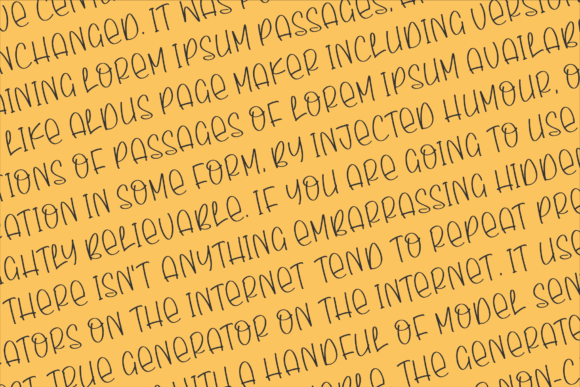 VE CENT
NCHANGED. IT WAS PO
AINING LOREM IPSUM PASSAGES, A
LIKE ALDUS PAGE MAKER INCLUDING VERSIO
TIONS OF PASSAGES OF LOREM IPSUM AVAILAB
RATION IN SOME FORM, BY INJECTED HUMOUR, O
IGHTLY BELIEVABLE. IF YOU ARE GOING TO USE
THERE ISN'T ANYTHING EMBARRASSING HIDDE
RATORS ON THE INTERNET TEND TO REPEAT PRE
ST TRUE GENERATOR ON THE INTERNET. IT USE
WITH A HANDFUL OF MODEL SEN
ABLE. THE GENERATE
NON-C